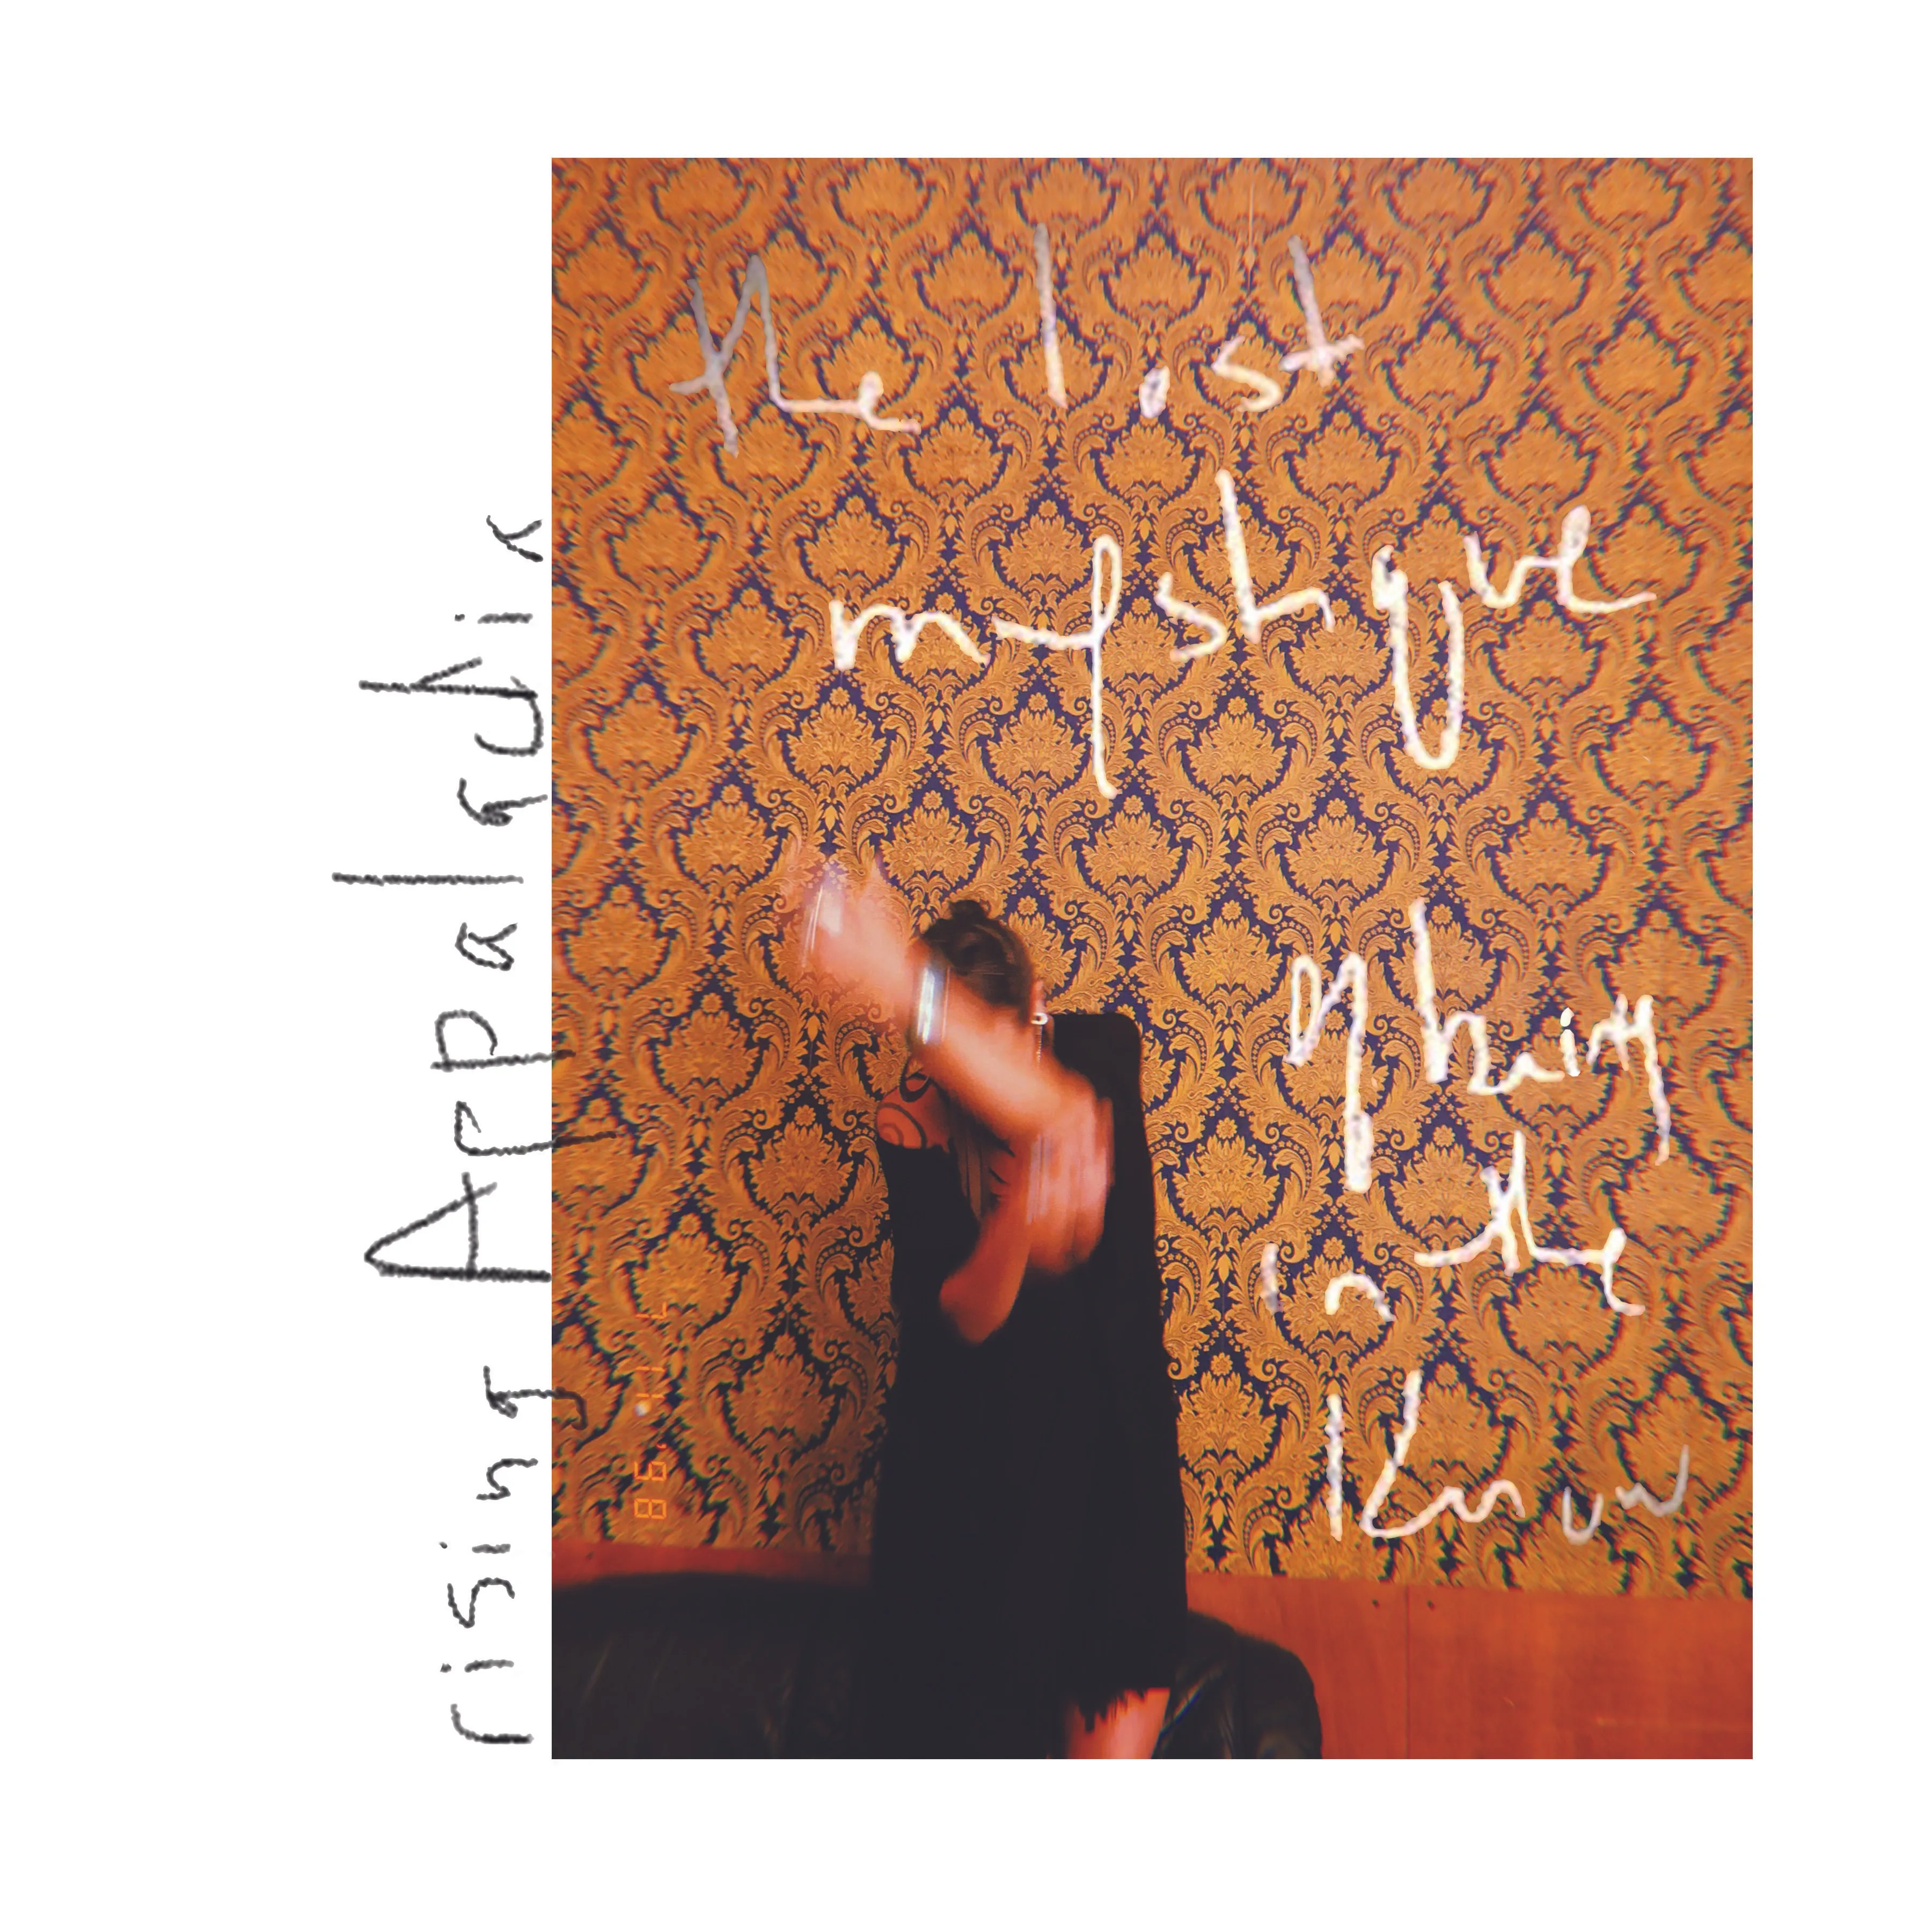 rising Appalachia
the lost
mystique
of being
in the
Know